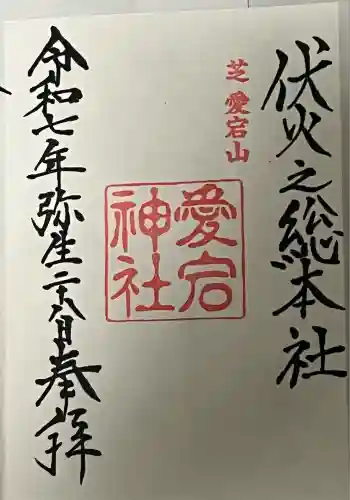 伏火之総本社
芝愛宕山
愛宕
神社
令和七年弥生二十八日奉拝